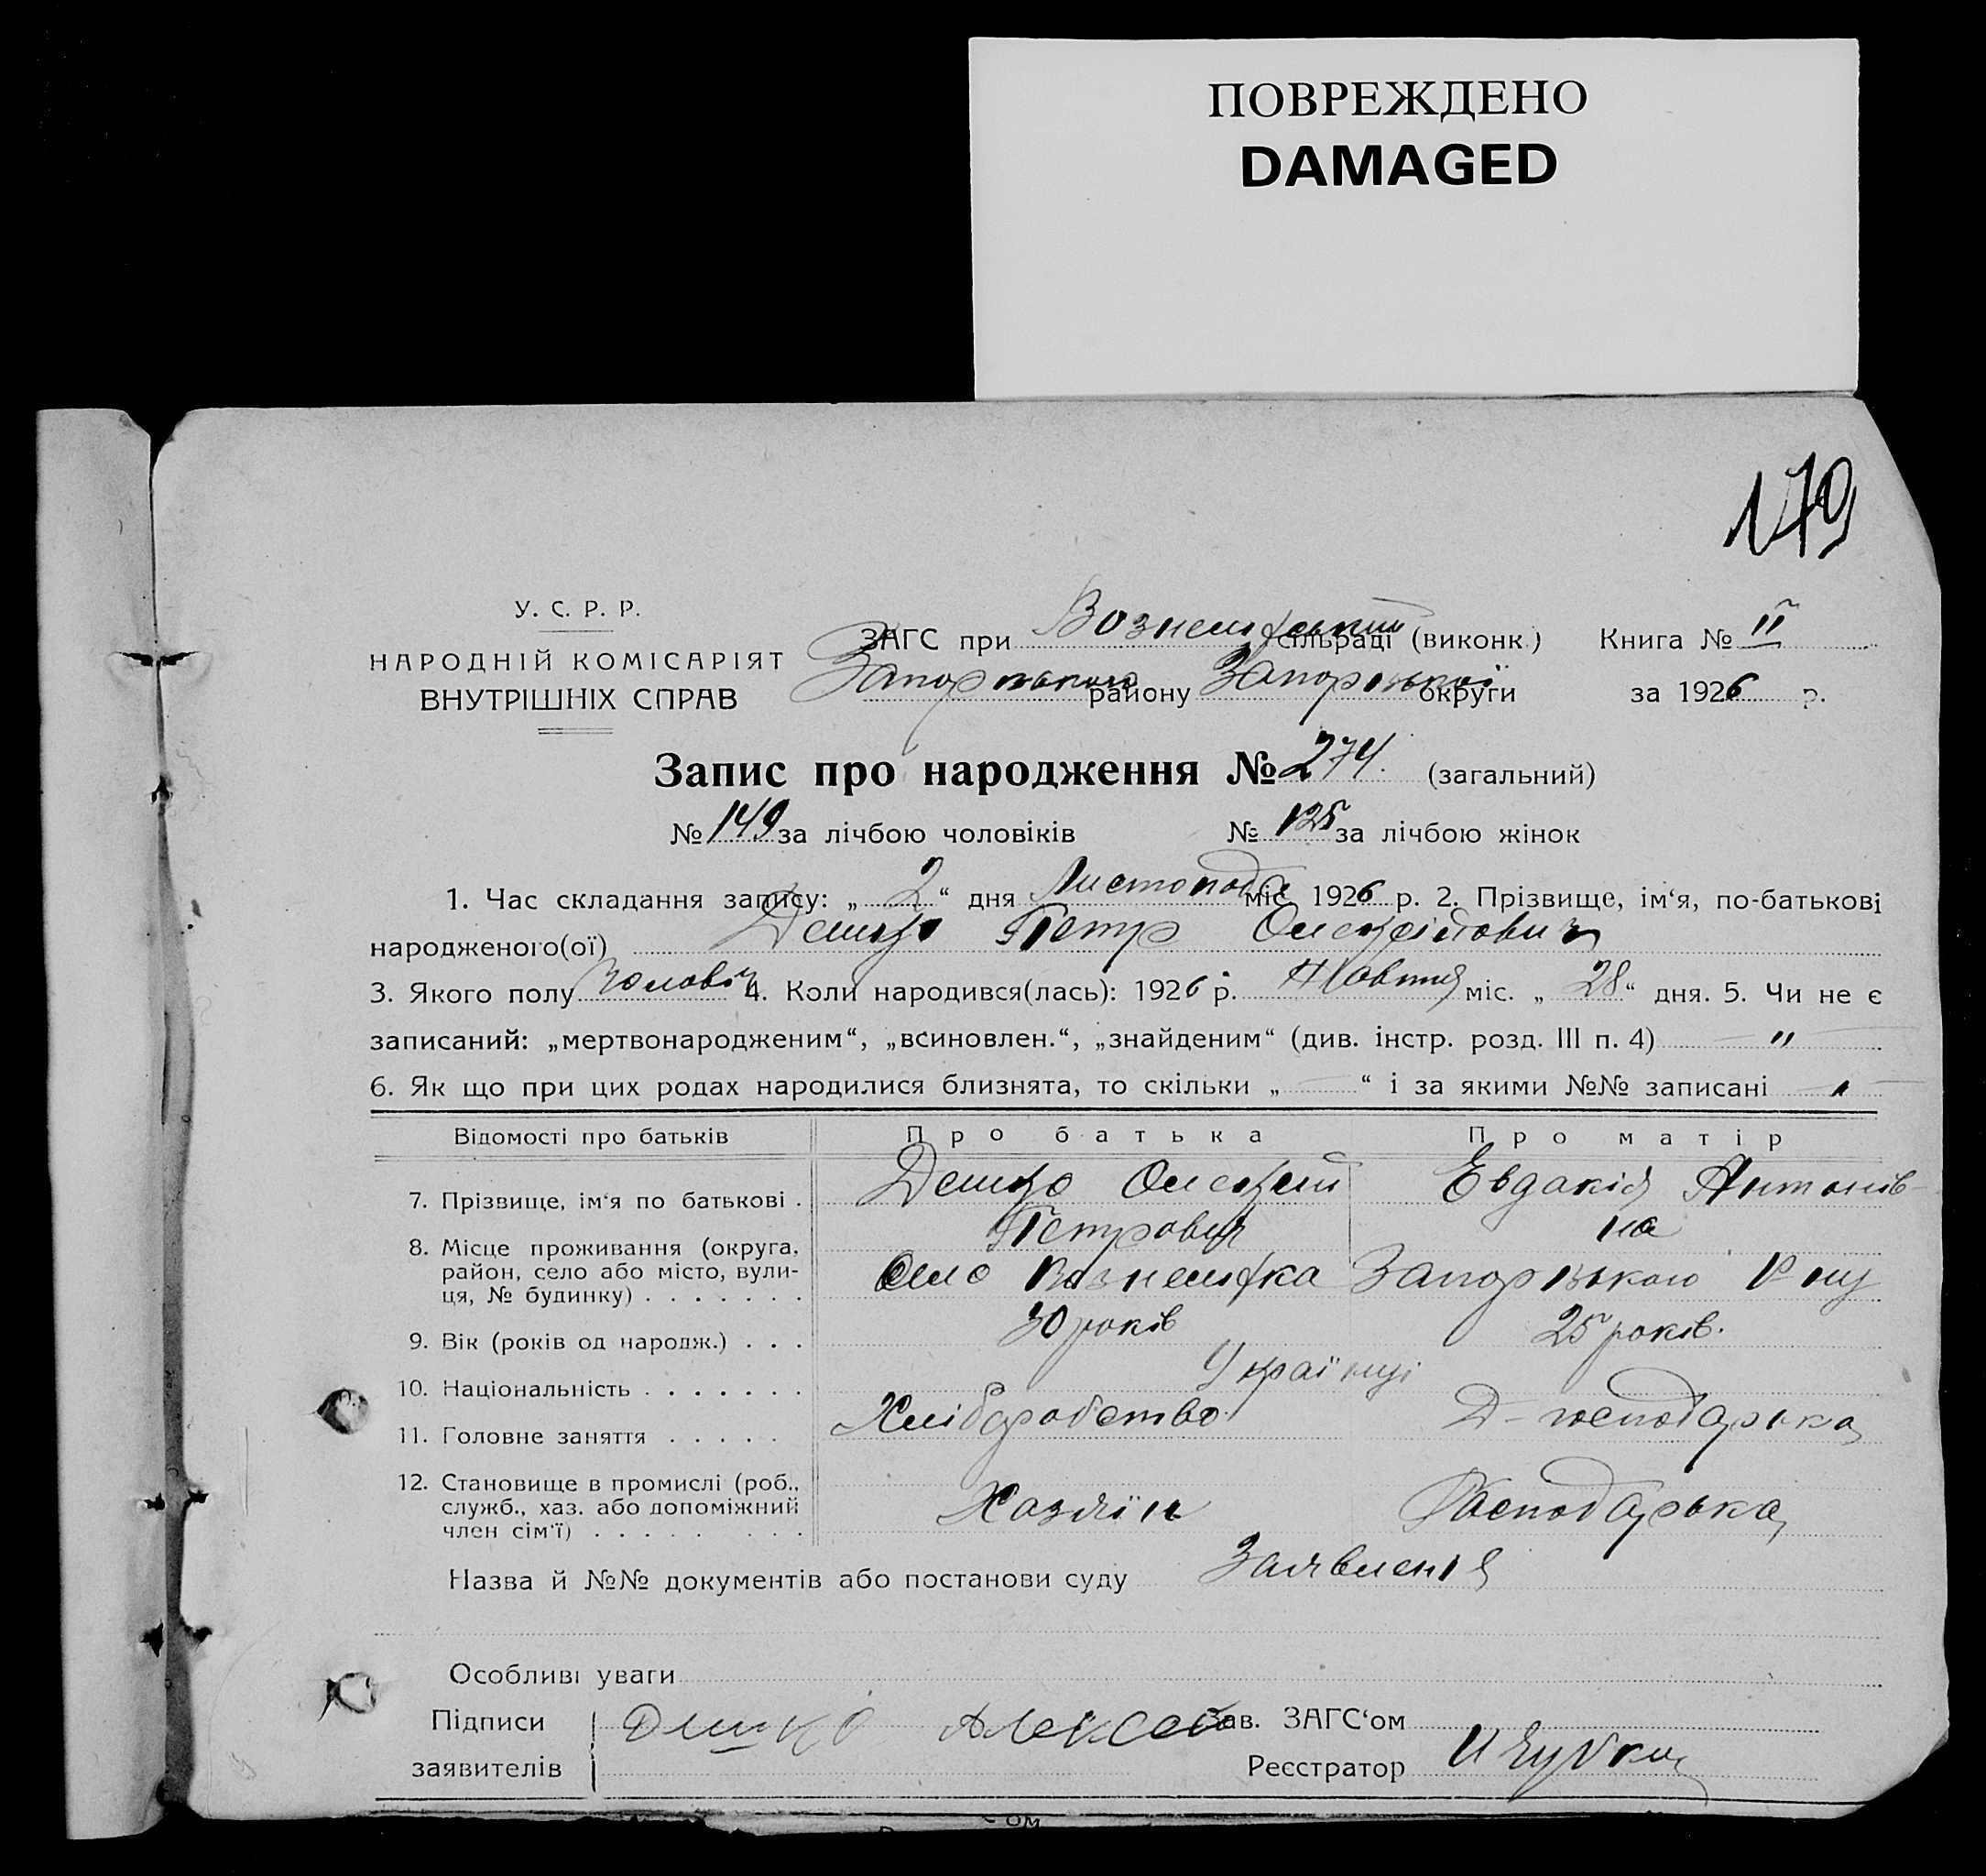 ПОВРЕЖДЕНО
DAMAGED
179
У. С. Р. Р.
НАРОДНІЙ КОМІСАРІЯТ
ВНУТРІШНІХ СПРАВ
ЗАГС при Вознесенський сільраді (виконк.) Книга № II
Запорізького району Запорізької округи за 1926 р.
Запис про народження № 274. (загальний)
№ 149 за лічбою чоловіків № 125 за лічбою жінок
1. Час складання запису: „ 2 “ дня Листопада міс. 1926 р. 2. Прізвище, ім‘я, по-батькові
народженого(ої) Петр Олексійович
3. Якого полу чолович 4. Коли народився(лась): 1926 р. Жовтня міс. „ 28 “ дня. 5. Чи не є
записаний: „мертвонародженим“, „всиновлен.“, „знайденим“ (див. інстр. розд. III п. 4) — "
6. Як що при цих родах народилися близнята, то скільки „ — “ і за якими №№ записані — "
Відомості про батьків Про батька Про матір
7. Прізвище, ім‘я по батькові . Олексій Евдакія Антонів-
Петрович на
8. Місце проживання (округа, район, село або місто, вули-ця, № будинку) . . . . . . . село Вознесенка Запорізького Р-ну
9. Вік (років од народж.) . . . 30 років 25 років.
10. Національність . . . . . . . Українці
11. Головне заняття . . . . . Хліборобство Д-господарька
12. Становище в промислі (роб., служб., хаз. або допоміжний член сім‘ї) . . . . . . . . Хазяїн Господарька
Назва й №№ документів або постанови суду Заявленія
Особливі уваги
Підписи Алексей Зав. ЗАГС‘ом
заявителів Реєстратор
ом